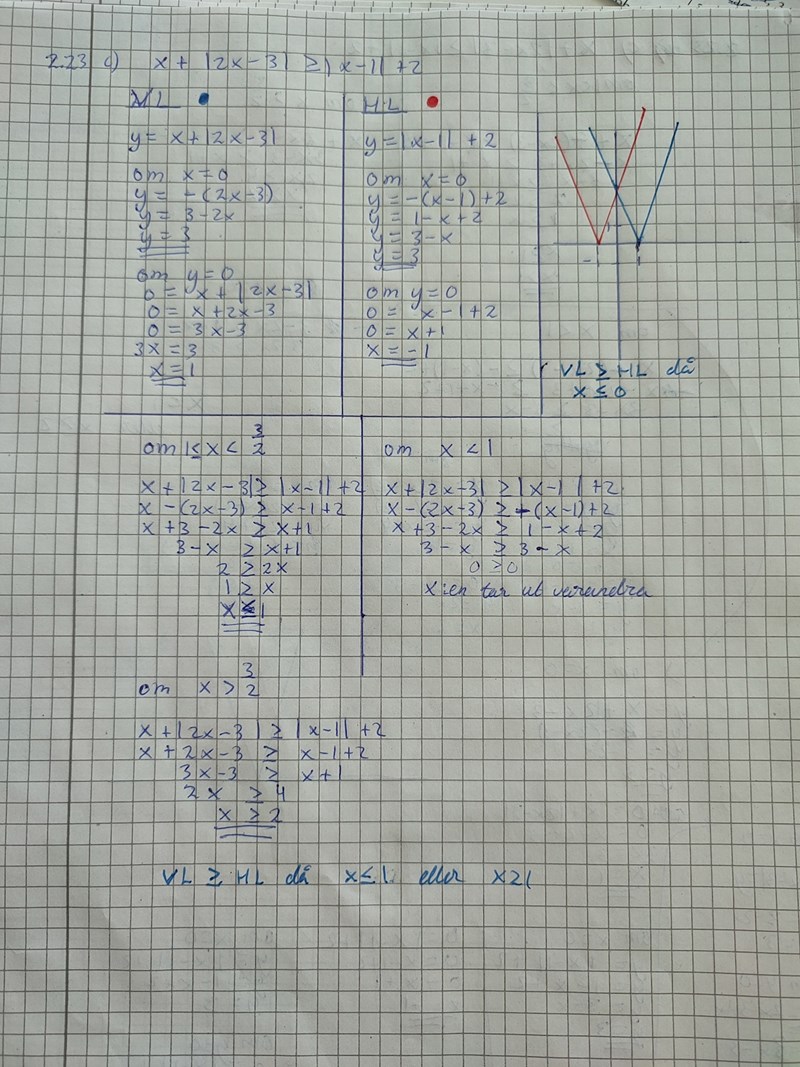 2.23 c) x + |2x-3| ≥ |x-1| + 2
VL
y = x+|2x-3|
om x=0
y = -(2x-3)
y = 3-2x
y = 3
om y=0
0 = x+|2x-3|
0 = x+2x-3
0 = 3x-3
3x = 3
x = 1
HL
y = |x-1| + 2
om x=0
y = -(x-1)+2
y = 1-x+2
y = 3-x
y = 3
om y=0
0 = x-1+2
0 = x+1
x = -1
-1 1
VL ≥ HL då
x ≤ 0
om 1≤x< 3/2
x+|2x-3| ≥ |x-1|+2
x-(2x-3) ≥ x-1+2
x+3-2x ≥ x+1
3-x ≥ x+1
2 ≥ 2x
1 ≥ x
x ≤ 1
om x < 1
x+|2x-3| ≥ |x-1|+2
x-(2x-3) ≥ -(x-1)+2
x+3-2x ≥ 1-x+2
3-x ≥ 3-x
0 ≥ 0
x:en tar ut varandra
om x > 3/2
x+|2x-3| ≥ |x-1|+2
x+2x-3 ≥ x-1+2
3x-3 ≥ x+1
2x ≥ 4
x ≥ 2
VL ≥ HL då x≤1 eller x≥